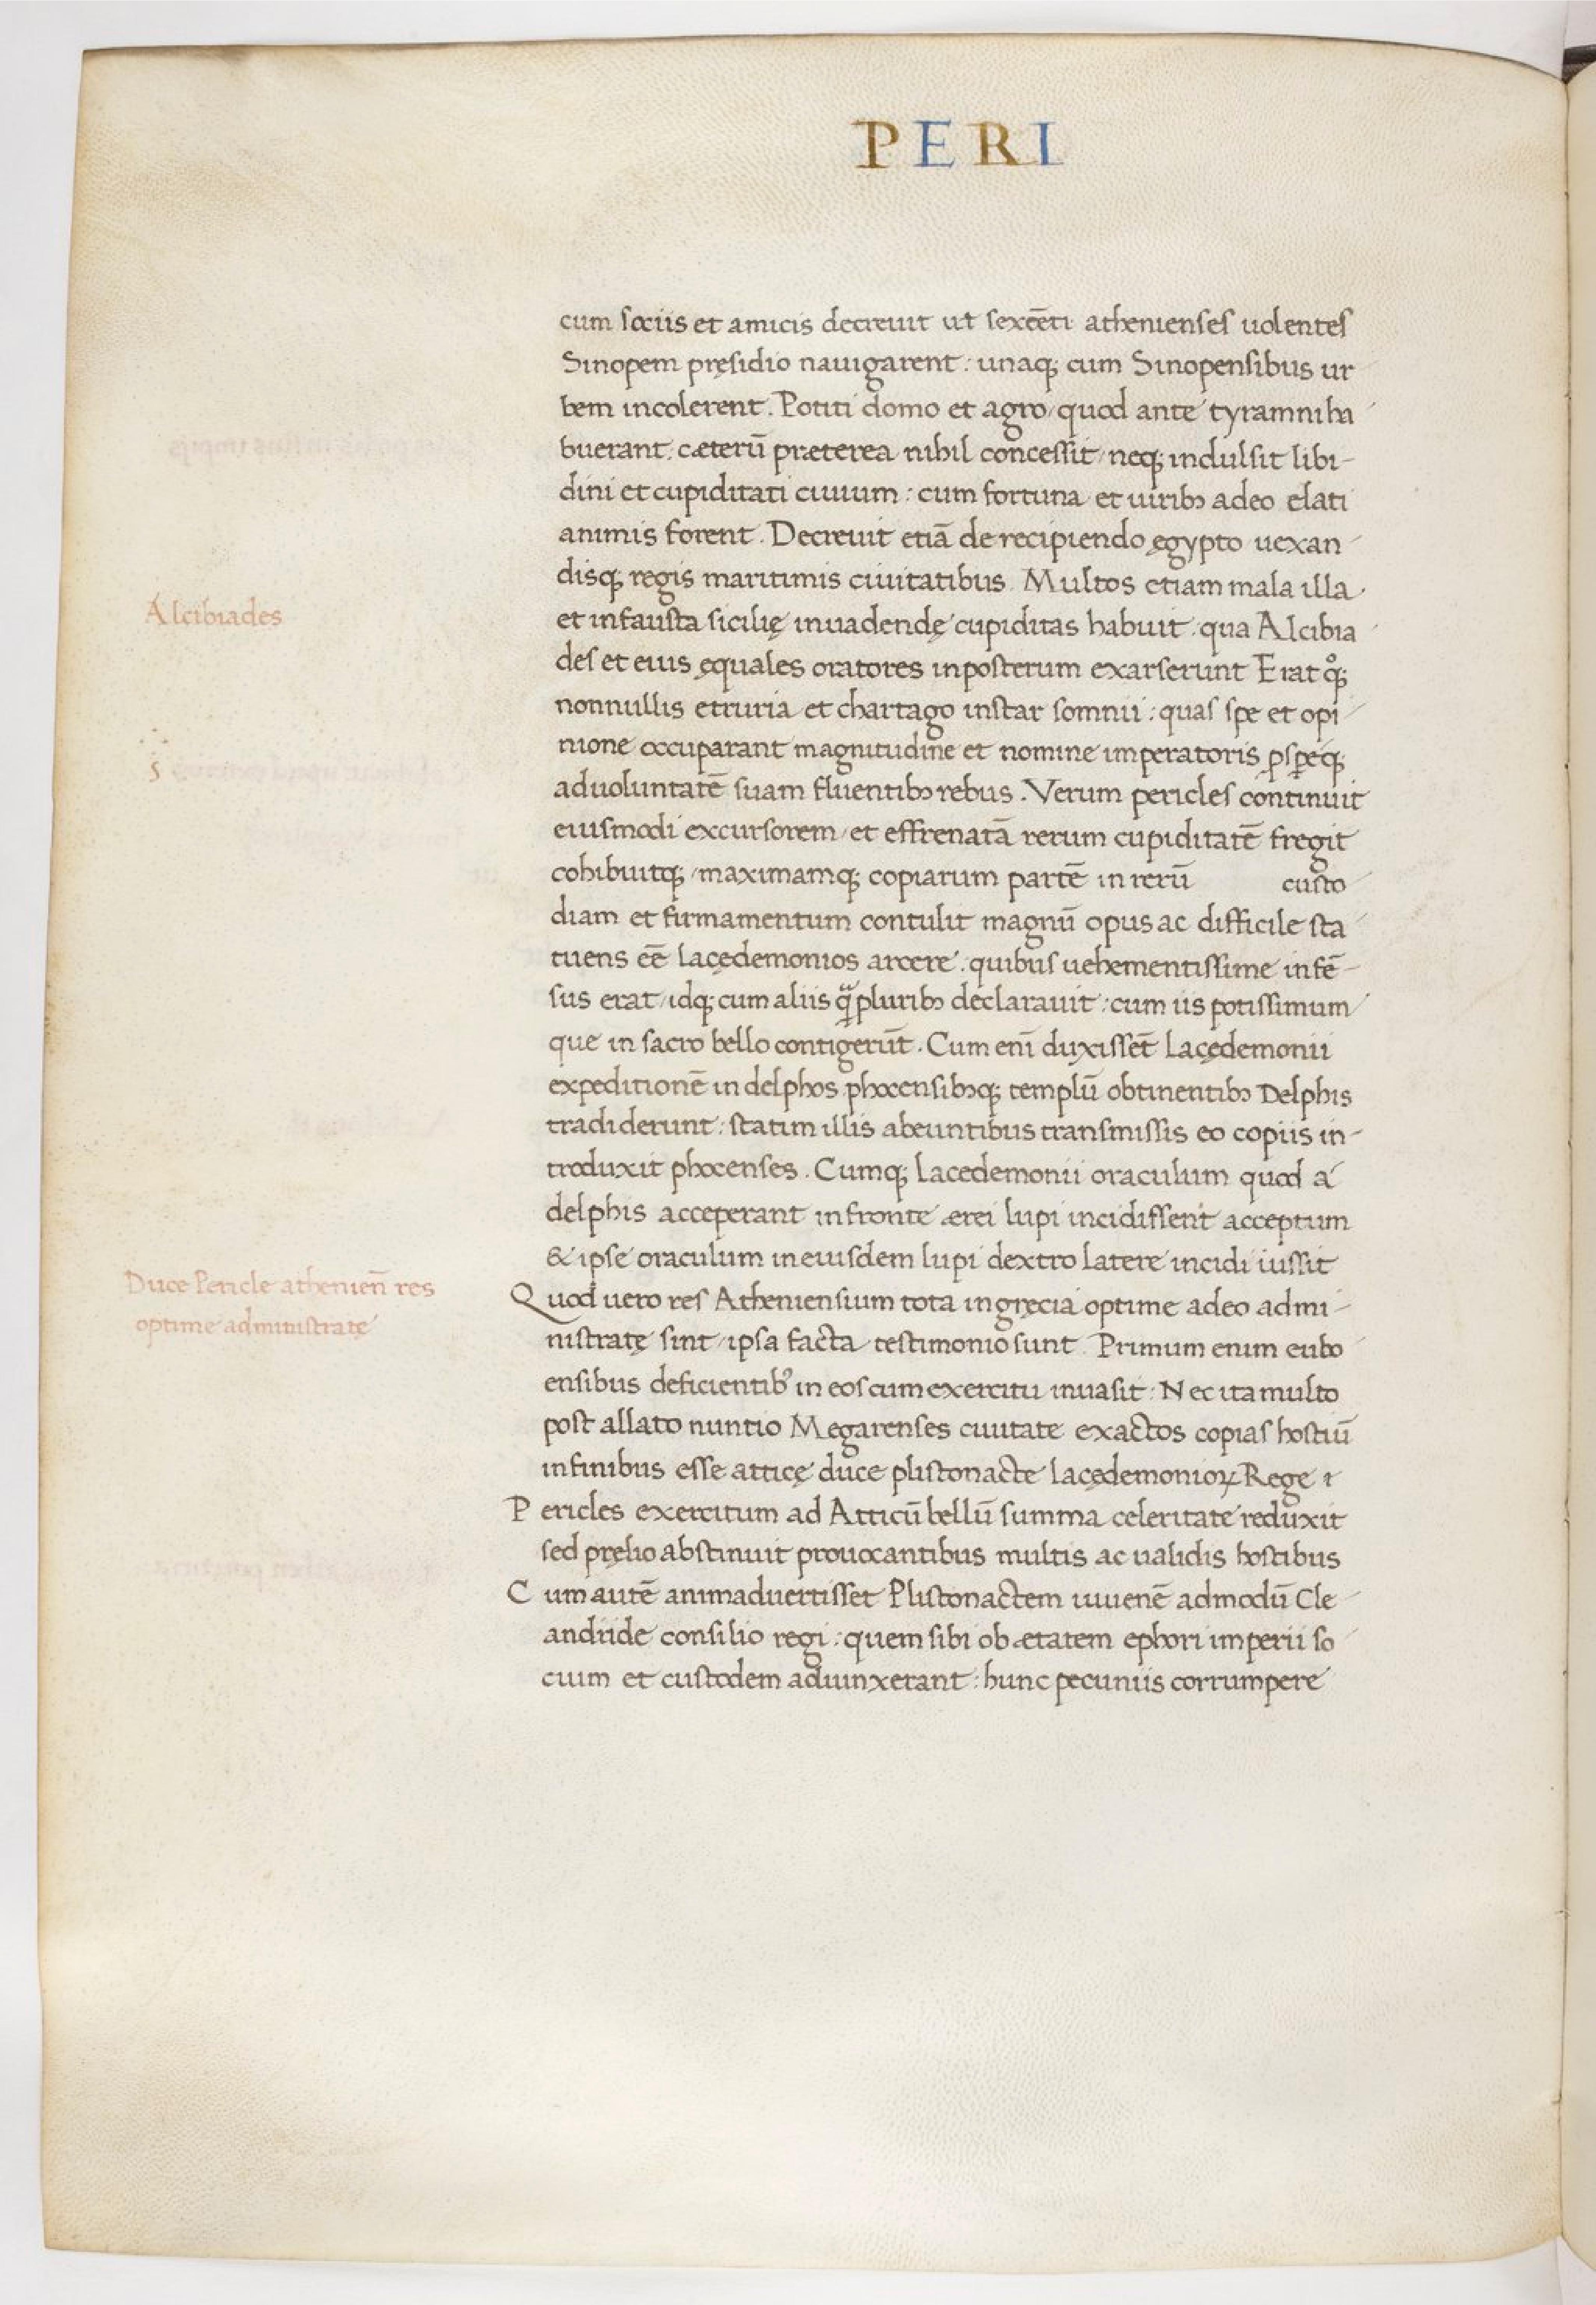 PERI
cum sociis et amicis decreuit ut sexcẽti athenienses uolentes
Sinopem pręsidio nauigarent : unaq; cum Sinopensibus ur
bem incolerent . Potiti domo et agro / quod ante tyramni ha
buerant . cæterũ præterea nihil concessit / neq; indulsit libi-
dini et cupiditati ciuium : cum fortuna et uiribꝫ adeo elati
animis forent . Decreuit etiã de recipiendo ęgypto uexan
disq; regis maritimis ciuitatibus . Multos etiam mala illa
Alcibiades
et infausta sicilię inuadendę cupiditas habuit . qua Alcibia
des et eius ęquales oratores inposterum exarserunt Erat qͦ;
nonnullis etruria et chartago instar somnii : quas spe et opi
nione occuparant magnitudine et nomine imperatoris ꝓspeq;
s
aduoluntatẽ suam fluentibꝫ rebus . Verum pericles continuit
eiusmodi excursorem / et effrenatã rerum cupiditatẽ fregit
cohibuitq; / maximamq; copiarum partẽ in rerũ custo
diam et firmamentum contulit magnũ opus ac difficile sta
tuens eẽ lacędemonios arcere . quibus uehementissime infẽ-
sus erat / idq; cum aliis q̃pluribꝫ declarauit : cum iis potissimum
que in sacro bello contigerũt . Cum enĩ duxissẽt lacędemonii
expeditionẽ in delphos phocensibꝫq; templũ obtinentibꝫ Delphis
tradiderunt : statim illis abeuntibus transmissis eo copiis in-
troduxit phocenses . Cumq; lacedemonii oraculum quod a
delphis acceperant infronte ærei lupi incidissent acceptum
& ipse oraculum in eiusdem lupi dextro latere incidi iussit
Duce Pericle atheñieñ res
optime administratę
Quod uero res Atheniensium tota in gręcia optime adeo admi-
nistratę sint / ipsa facta testimonio sunt . Primum enim eubo
ensibus deficientibꝰ in eos cum exercitu inuasit : Nec ita multo
post allato nuntio Megarenses ciuitate exactos copias hostiũ
infinibus esse atticę duce plistonacte lacędemonioꝝ Rege
Pericles exercitum ad Atticũ bellũ summa celeritate reduxit
sed pręlio abstinuit prouocantibus multis ac ualidis hostibus
Cum autẽ animaduertisset Plistonactem iuuenẽ admodũ Cle
andride consilio regi : quem sibi ob ætatem ephori imperii so
cium et custodem adiunxerant : hunc pecuniis corrumpere